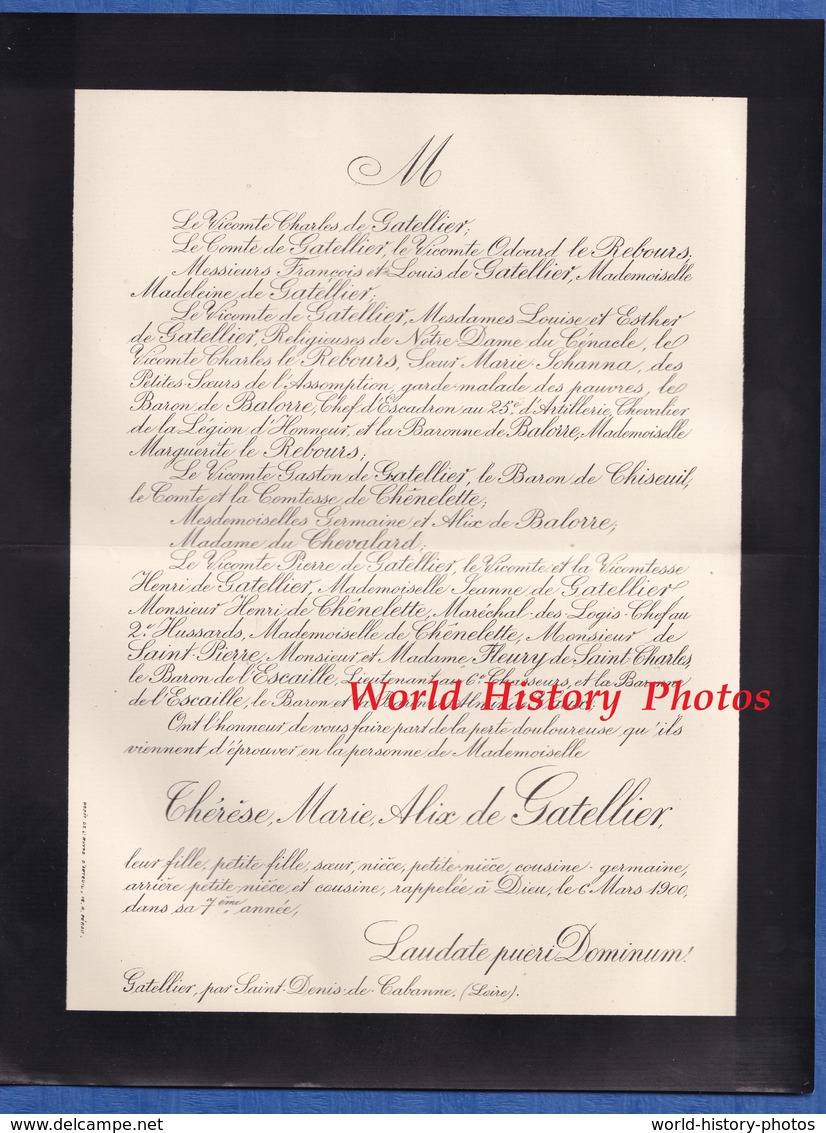 M
Le Vicomte Charles de Gatellier;
Le Comte de Gatellier, le Vicomte Odoard le Rebours;
Messieurs François et Louis de Gatellier, Mademoiselle
Madeleine de Gatellier;
Le Vicomte de Gatellier, Mesdames Louise et Esther
de Gatellier, Religieuses de Notre-Dame du Cénacle, le
Vicomte Charles le Rebours, Sœur Marie-Johanna, des
Petites-Sœurs de l'Assomption, garde-malade des pauvres, le
Baron de Balorre, Chef d'Escadron au 25e d'Artillerie, Chevalier
de la Légion d'Honneur, et la Baronne de Balorre, Mademoiselle
Marguerite le Rebours;
Le Vicomte Gaston de Gatellier, le Baron de Chiseuil,
le Comte et la Comtesse de Chênelette;
Mesdemoiselles Germaine et Alix de Balorre;
Madame du Chevalard;
Le Vicomte Pierre de Gatellier, le Vicomte et la Vicomtesse
Henri de Gatellier, Mademoiselle Jeanne de Gatellier
Monsieur Henri de Chênelette, Maréchal-des-Logis-Chef au
2e Hussards, Mademoiselle de Chênelette, Monsieur de
Saint-Pierre, Monsieur et Madame Fleury de Saint Charles,
le Baron de l'Escaille, Lieutenant au 6e Chasseurs, et la Baronne
de l'Escaille, le Baron et la
World History Photos
Ont l'honneur de vous faire part de la perte douloureuse qu'ils
viennent d'éprouver en la personne de Mademoiselle
Thérèse, Marie, Alix de Gatellier,
leur fille, petite-fille, sœur, nièce, petite-nièce, cousine-germaine,
arrière petite nièce et cousine, rappelée à Dieu, le 6 Mars 1900,
dans sa 7ème année,
Laudate pueri Dominum!
Gatellier, par Saint-Denis-de-Cabanne, (Loire).
world-history-photos